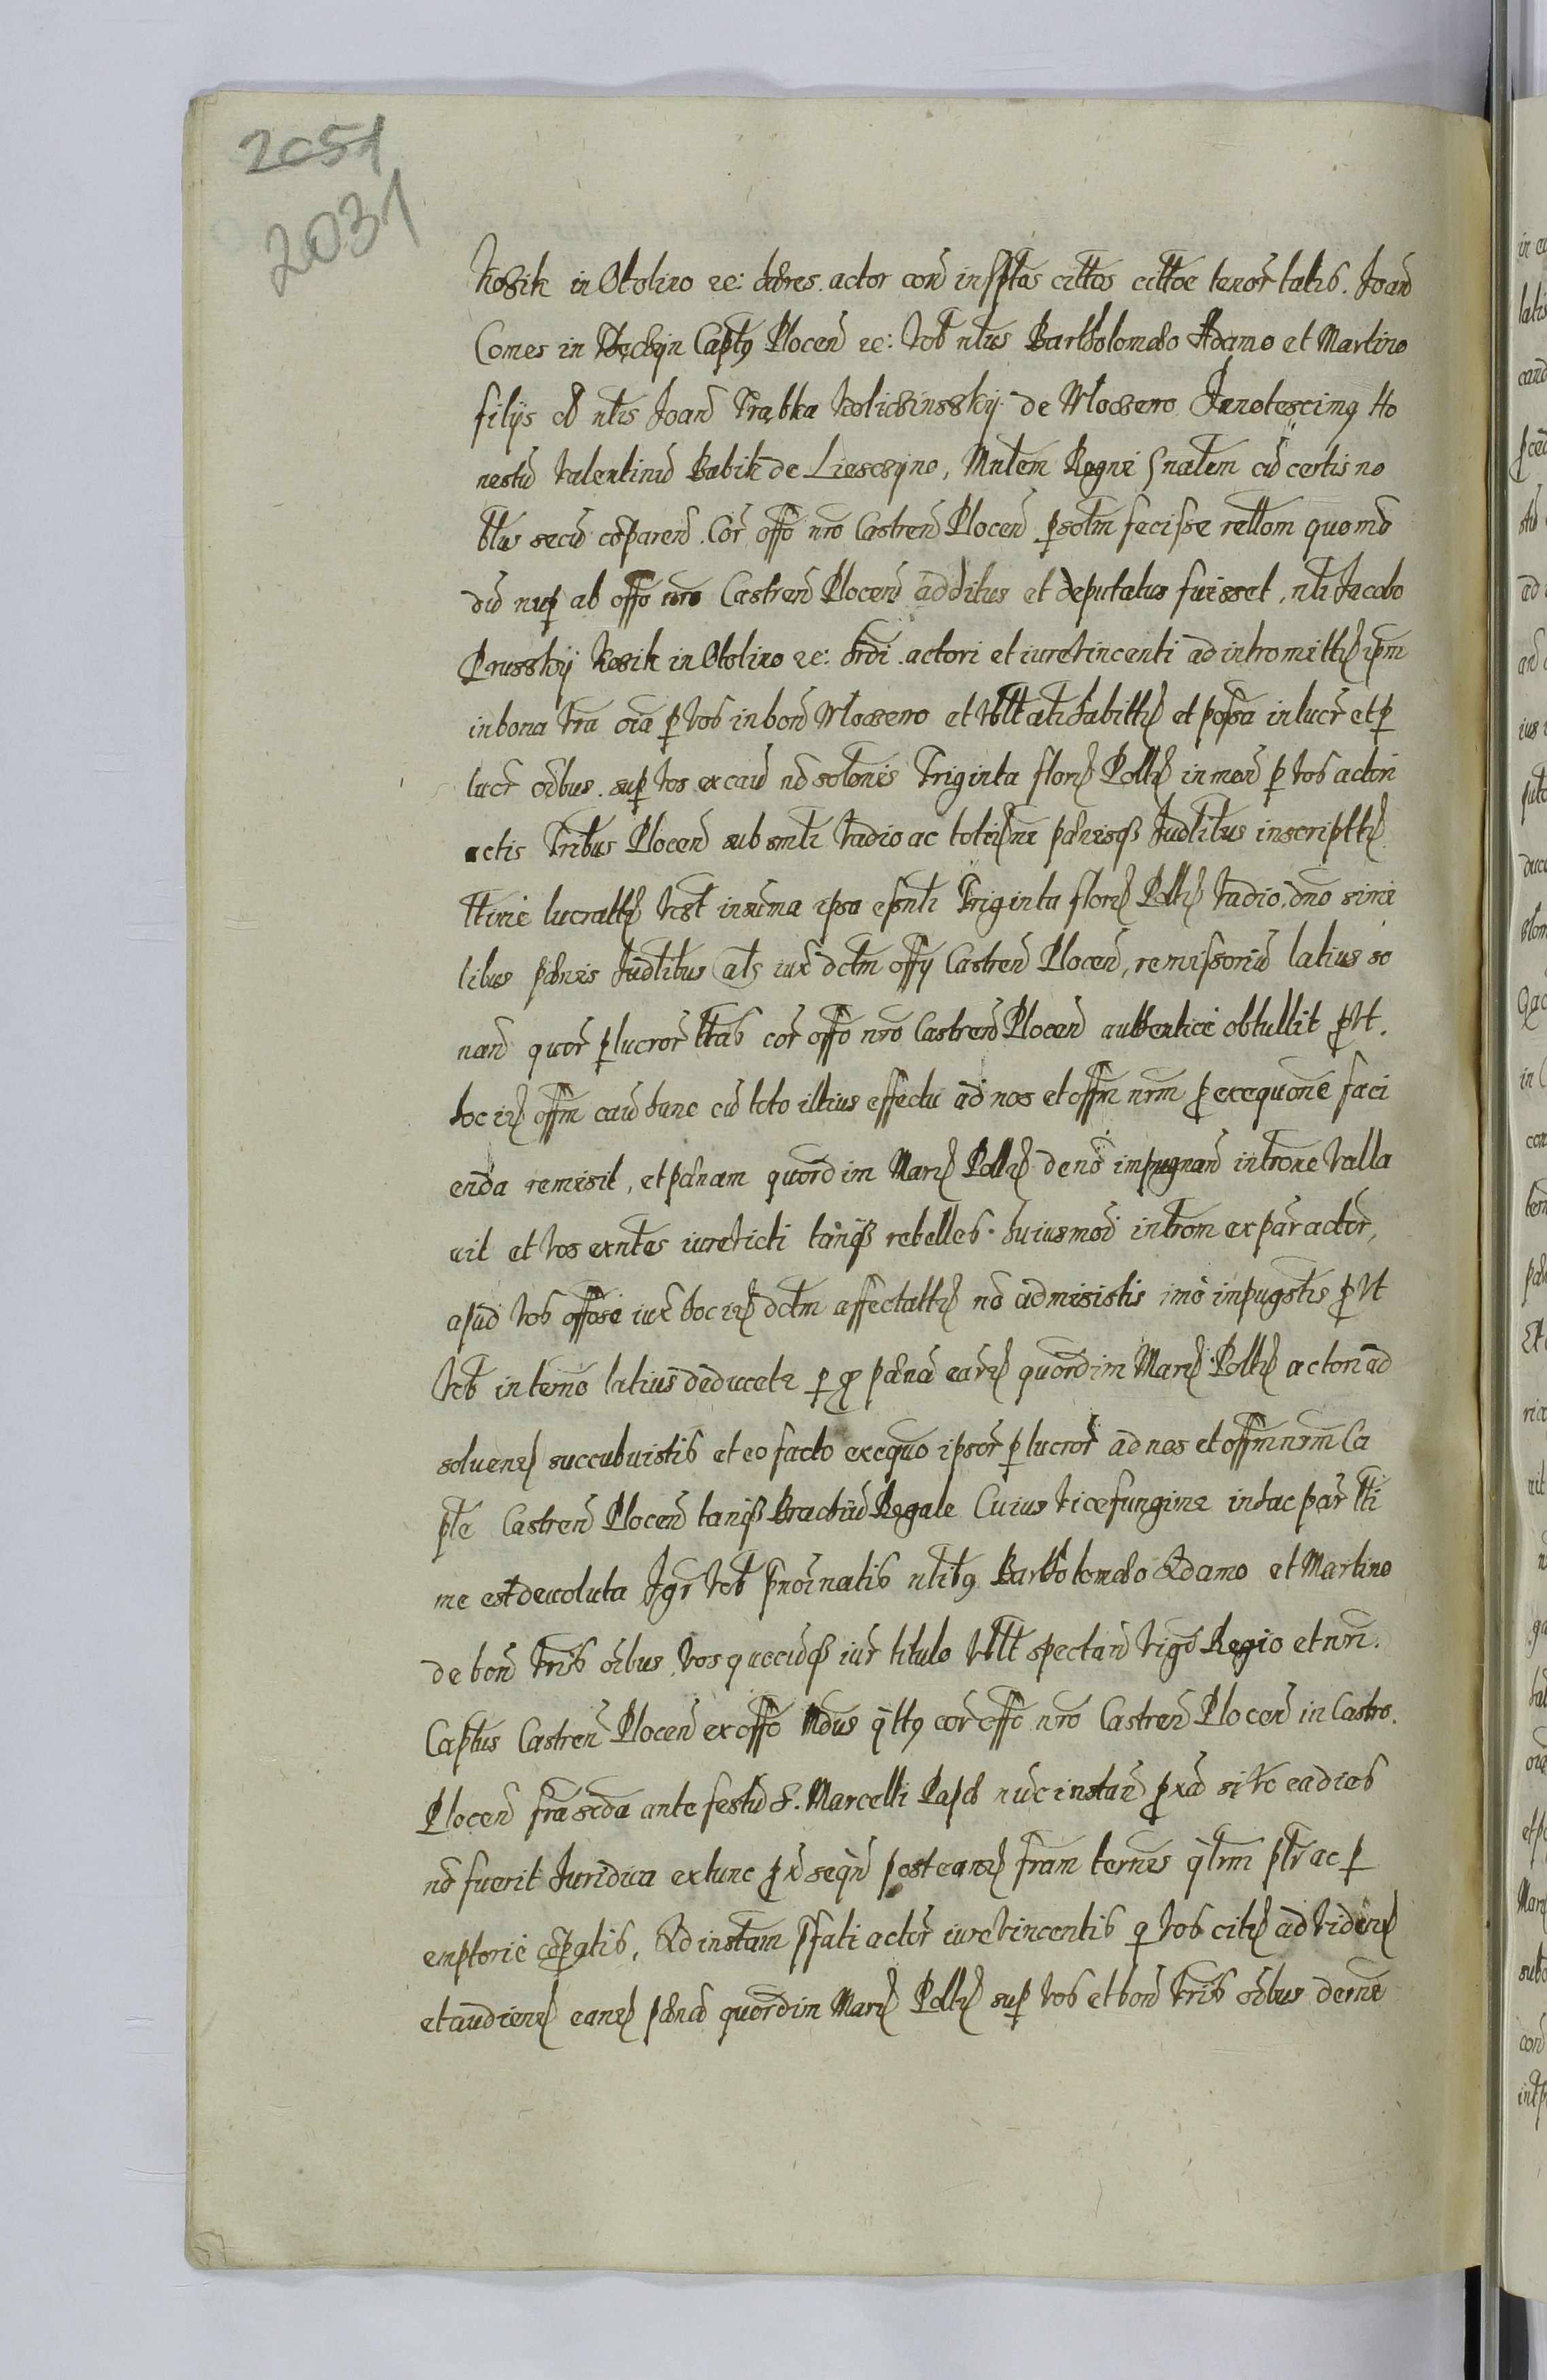 2051
2031
Kosik in Obolino ec: hæres. actor con̄ insptas cittas cittõe tenor̄ talis. Joan̄
Comes in Thęczyn Capt9 Plocen̄ ec: Vob̄ nlis Bartholomæo Adamo et Martino
filijs ol nlis Joan̄ Trąbka Wolichinsskij de Wloczewo Innotescim9 Ho
nestū Valentinū Babik de Liesczyno, Mntem Regni Gnalem cū certis no
blis secū cōparen̄. Cor̄ offo nro Castren̄ Plocen̄ psoltm fecisse reltom quomō
dū nup ab offo nro Castren̄ Plocen̄ additus et deputatus fuisset, nli Jacobo
Prusskij Kosik in Obolino ec: hrdi actori et iurevincenti ad intromittḡ ipm
in bona vra oia p vos in bon̄ Wloczewo et vblt ati habittḡ et possa in lucr̄ et p
lucr̄ oibus. sup vos ex cau nō solonis Triginta florḡ Poltḡ in mon̄ p vos actori
actis Tribus Plocen̄ sub smli vadio ac pænisq Judlibus inscripttḡ
ttirie lucrattḡ vist in suma ipsa Triginta florḡ Poltḡ vadio. dno simi
libus pænis Judlibus als iux dctm offij Castren̄ Plocen̄, remissoriū latius so
nan̄ quor̄ plucror̄ ttas cor̄ offo nro Castren̄ Plocen̄ authentice obtullit pvt.
hoc iḡ offm cau hanc cū toto illius effectu ad nos et offm nrm p exequone faci
enda remisit, et pænam quordim Marḡ Poltḡ de nō impugnan̄ introne valla
vit et vos exntes iurevicti tanq rebelles. huiusmōi introm ex par actor̄,
apud vos offose iux hoc iḡ dctm affectattḡ nō admisistis imo impugstis pvt
vob in termo latius deducetr p qo pænā earḡ quordim Marḡ Poltḡ actori ad
soluenḡ succubuistis et eo facto exequo ipsor̄ plucror̄ ad nos et offm nrm Ca
ple Castren̄ Plocen̄ tanq Brachiū Regale Cuius vicefungimr in hac par tti
me est deuoluta Igr vob pnoinatis nlib9 Bartholomæo Adamo et Martino
de bon̄ vris oibus, vos quocūq iur titulo vblt spectan̄ vigō Regio et nri.
Captus Castren̄ Plocen̄ ex offo Mdus qtt9 cor̄ offo nro Castren̄ Plocen̄ in Castro.
Plocen̄ fra scda ante festū S. Marcelli Papæ nūc instan̄ pxa si vo ea dies
nō fuerit Juridica extunc px seqn̄ post eanḡ fram termes qtrm ptr ac p
emptorie cōpatis, Ad instam pfati actor̄ iurevincentis q vos citḡ ad videnḡ
et audienḡ eanḡ pænā quordim Marḡ Poltḡ sup vos et bon̄ vris oibus derne